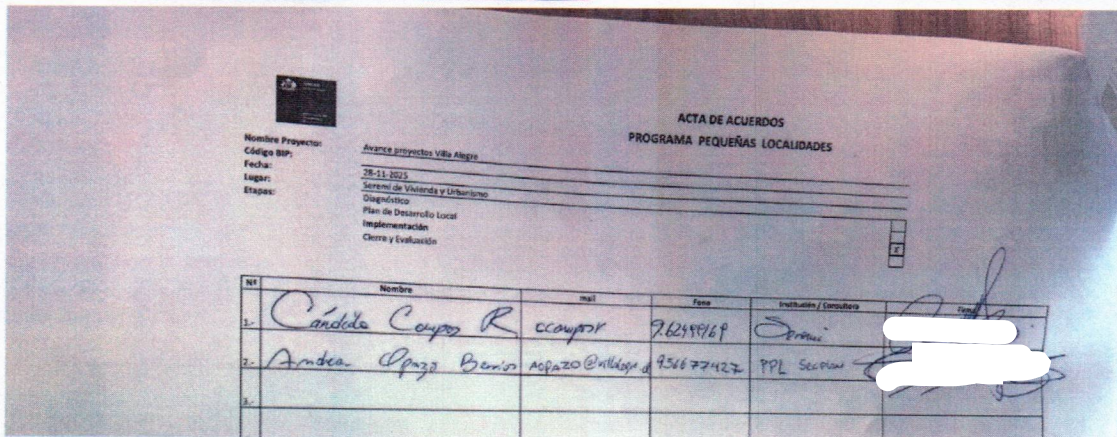 ACTA DE ACUERDOS
PROGRAMA PEQUEÑAS LOCALIDADES
Nombre Proyecto: Avance proyectos Villa Alegre
Código BIP:
Fecha: 28-11-2025
Lugar: Seremi de Vivienda y Urbanismo
Etapas: Diagnóstico
Plan de Desarrollo Local
Implementación X
Cierre y Evaluación
Nº Nombre mail Fono Institución / Consultora Firma
1.- Cándido Campos R ccamposr 9.62499169 Seremi
2.- Andrea Opazo Berrios 956677427 PPL
3.-